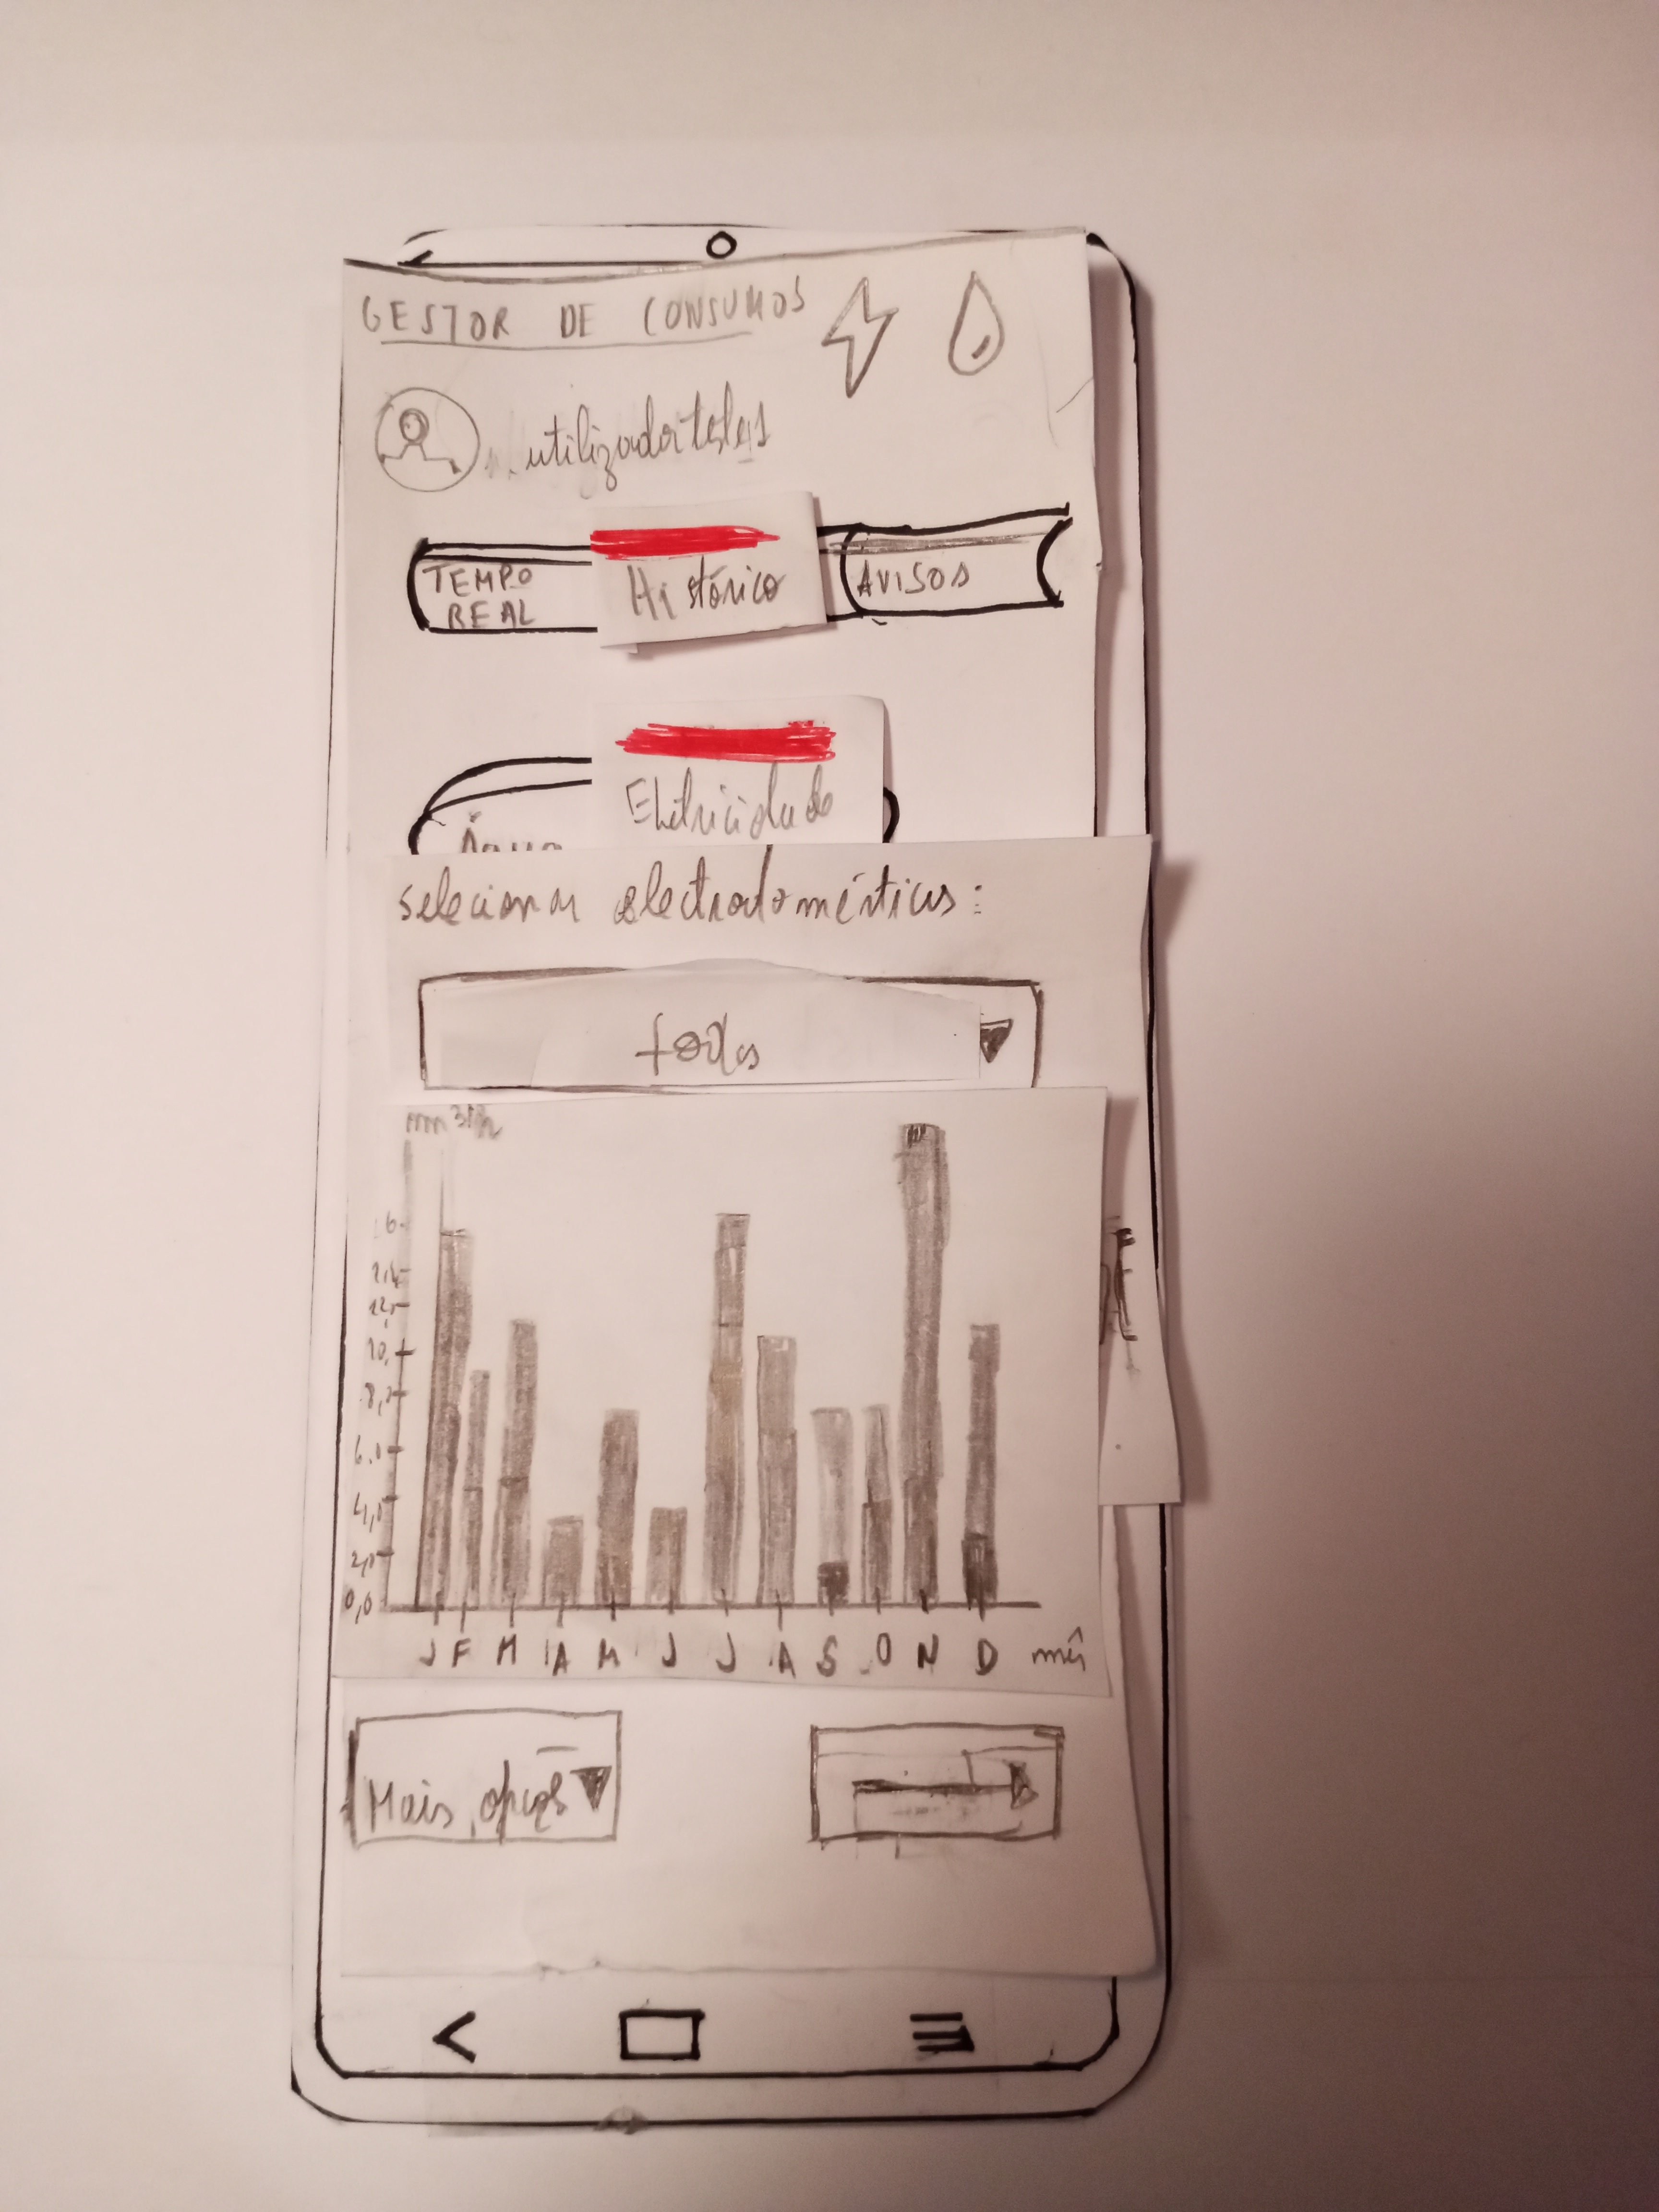 GESTOR DE CONSUMOS
utilizadorteste1
TEMPO REAL
Histórico
AVISOS
Eletricidade
selecionar electrodomésticos:
todos
10,
8,0
6,0
4,0
2,0
0,0
J F M A M J J A S O N D mês
Mais opções